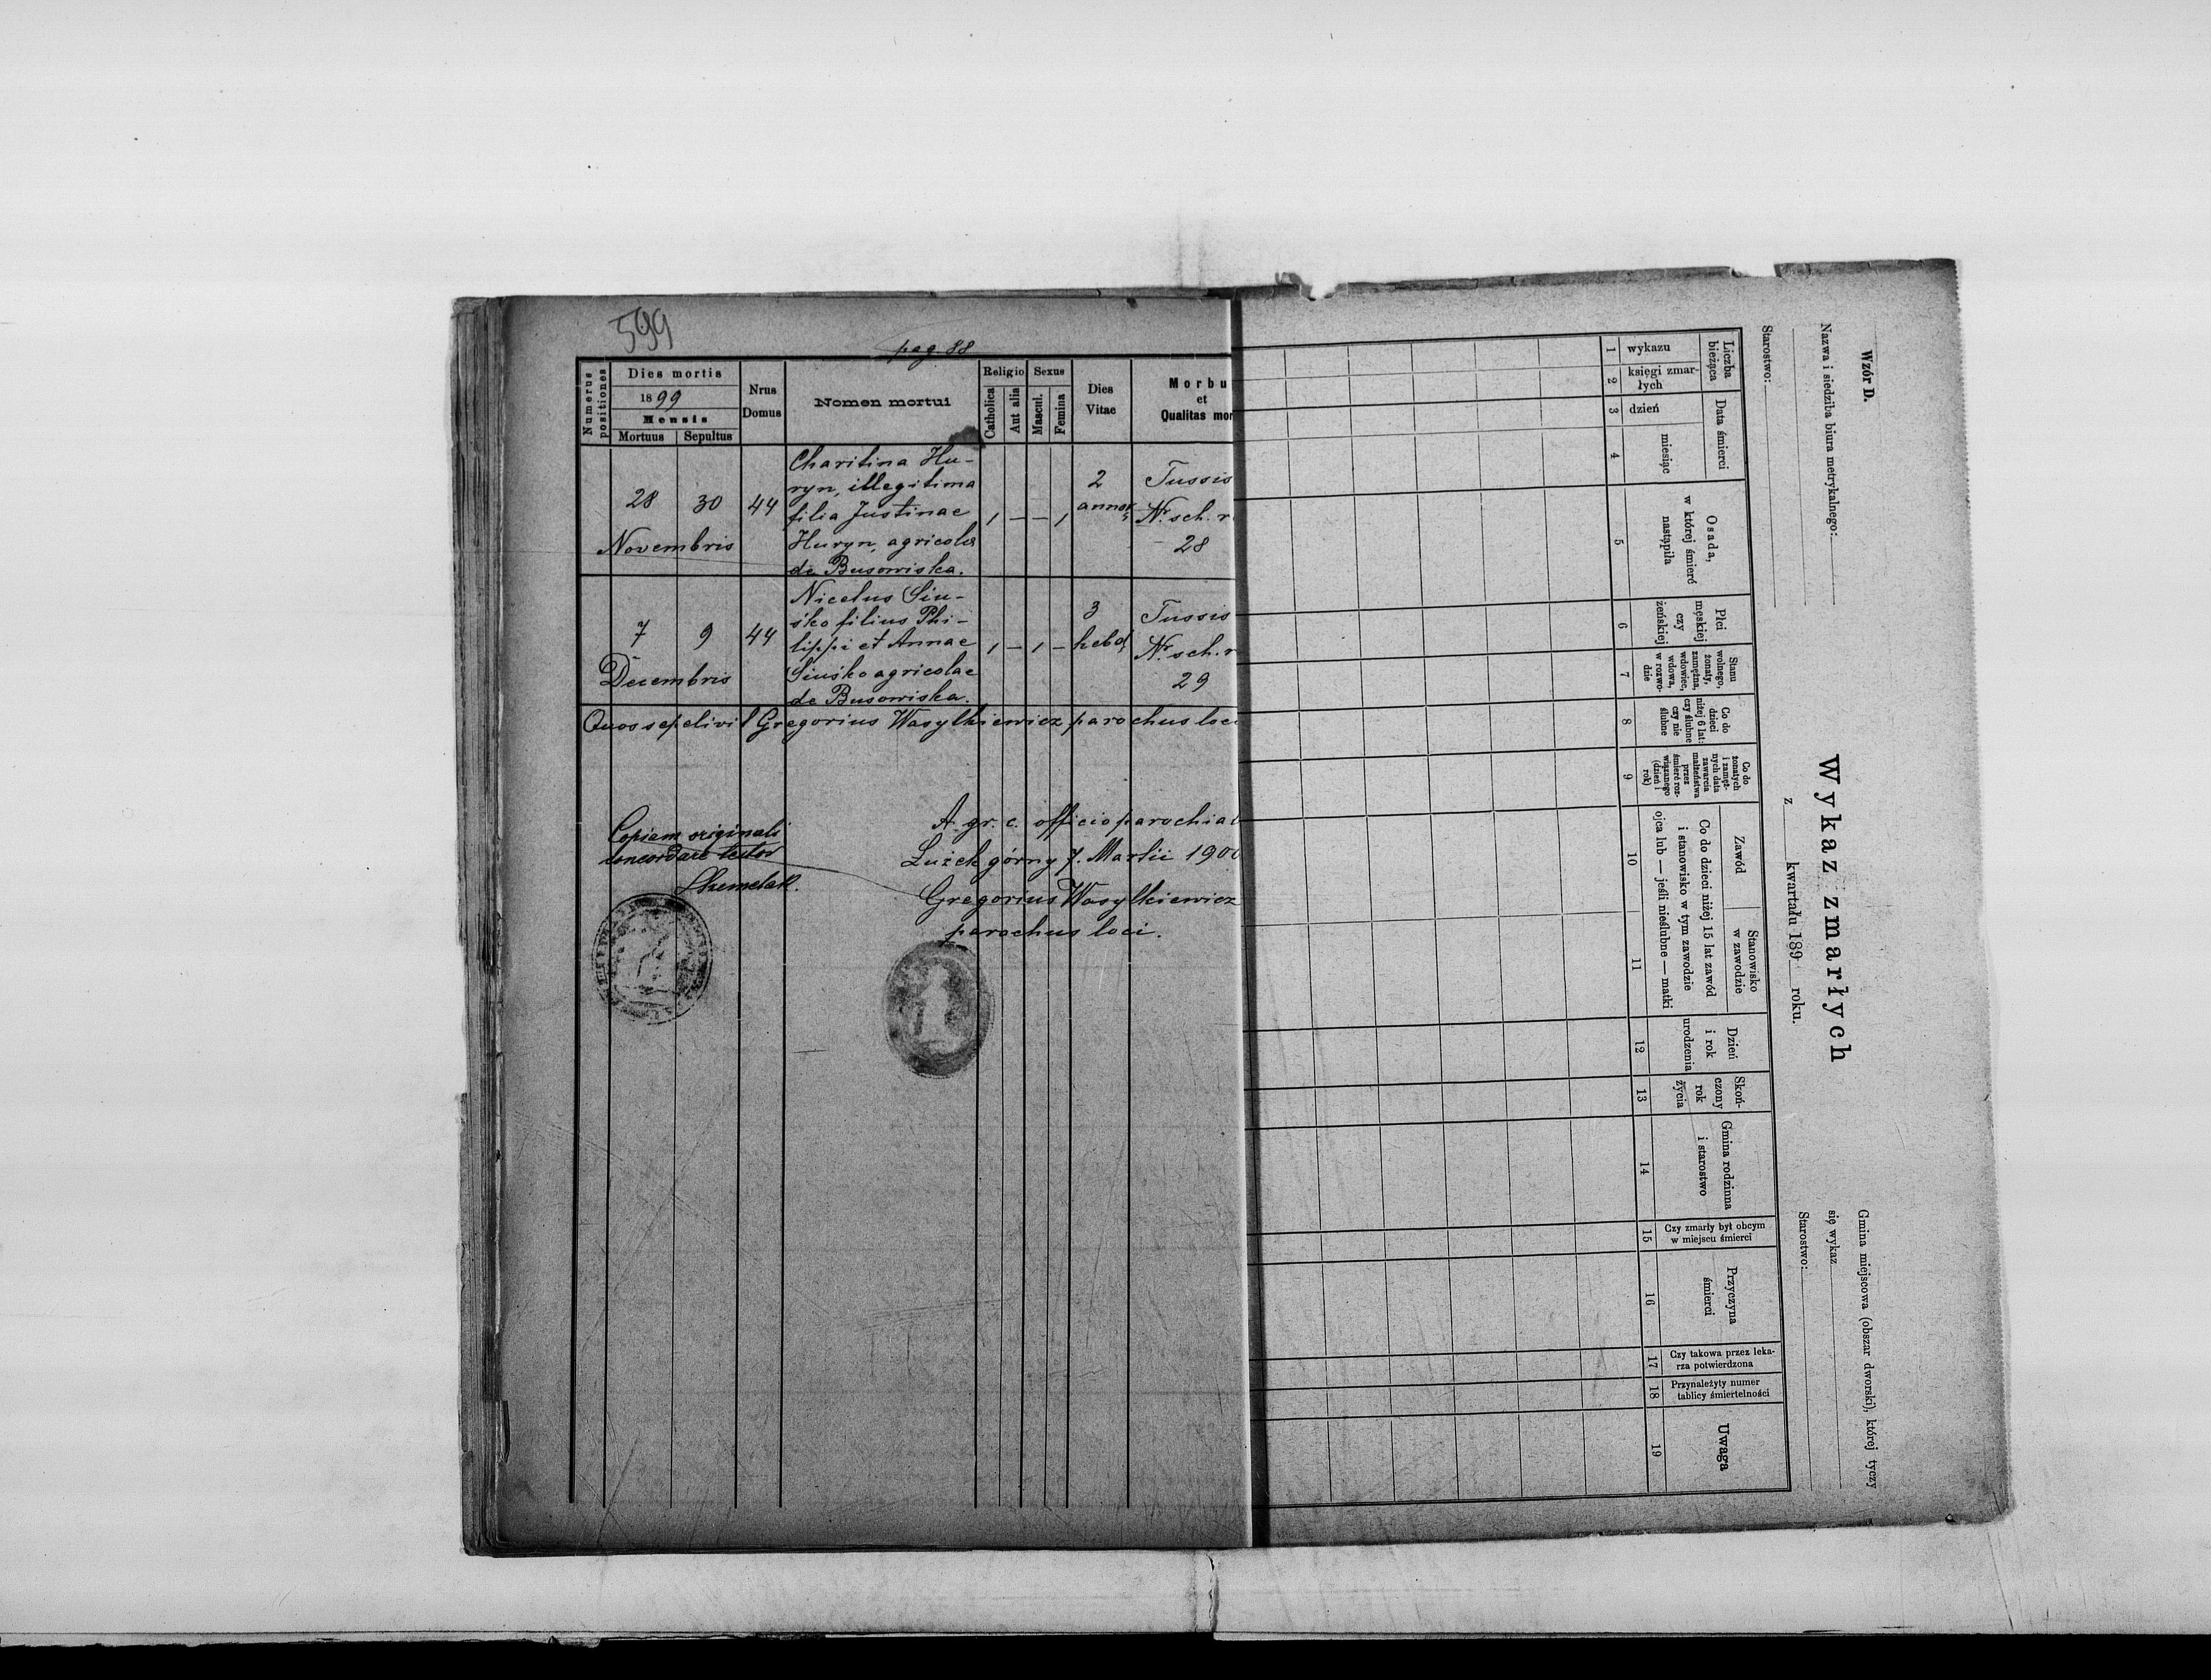 599
pag. 88
Numerus positiones
Dies mortis
1899
Mensis
Mortuus Sepultus
Nrus Domus
Nomen mortui
Religio
Catholica
Aut alia
Sexus
Mascul.
Femina
Dies Vitae
Morbu
et
Qualitas mor
Charitina Hu-
ryn, illegitima
28 30 44 filia Justinae 1 — — 1
Novembris Huryn, agricolae
de Busowiska.
2
annor.
Tussis
Nr. sch. r
28
Nicetus Siu-
śko filius Phi-
7 9 44 lippi et Annae 1 — 1 —
Decembris Siuśko agricolae
de Busowiska.
3
hebd.
Tussis
Nr. sch. r
29
Quos sepelivit Gregorius Wasylkiewicz parochus loci
Copiam originali
concordare testor
A gr. c. officio parochial
Łużek górny 7. Martii 1900
Gregorius Wasylkiewicz
parochus loci.
Wzór D.
Nazwa i siedziba biura metrykalnego:
Starostwo:
Wykaz zmarłych
z kwartału 189 roku.
Gmina miejscowa (obszar dworski), której tyczy
się wykaz
Starostwo:
Liczba bieżąca
wykazu
księgi zmar-
łych
Data śmierci
dzień
miesiąc
Osada,
w której śmierć
nastąpiła
Płci
męskiej
czy
żeńskiej
Stanu
wolnego,
żonaty,
zamężna,
wdowiec,
wdowa,
w rozwo-
dzie
Co do
dzieci
niżej 6 lat:
czy ślubne
czy nie
ślubne
Co do
żonatych
i zamęż-
nych data
zawarcia
małżeństwa
przez
śmierć roz-
wiązanego
(dzień i
rok)
Zawód
Stanowisko
w zawodzie
Co do dzieci niżej 15 lat zawód
i stanowisko w tym zawodzie
ojca lub — jeśli nieślubne — matki
Dzień
i rok
urodzenia
Skoń-
czony
rok
życia
Gmina rodzinna
i starostwo
Czy zmarły był obcym
w miejscu śmierci
Przyczyna
śmierci
Czy takowa przez leka-
rza potwierdzona
Przynależyty numer
tablicy śmiertelności
Uwaga
1 2 3 4 5 6 7 8 9 10 11 12 13 14 15 16 17 18 19